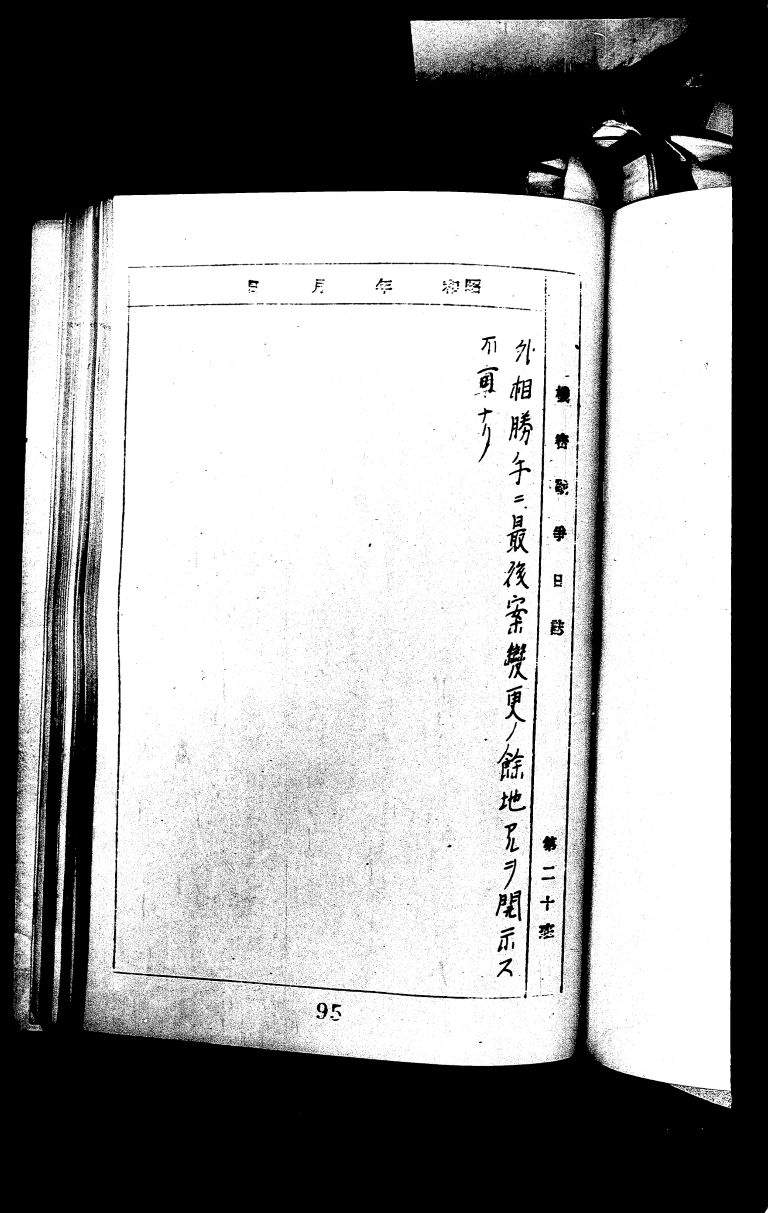 昭和 年 月 日
機密戰爭日誌 第二十班
外相勝手ニ最後案變更ノ餘地アルヲ開示ス
不 ナリ
95